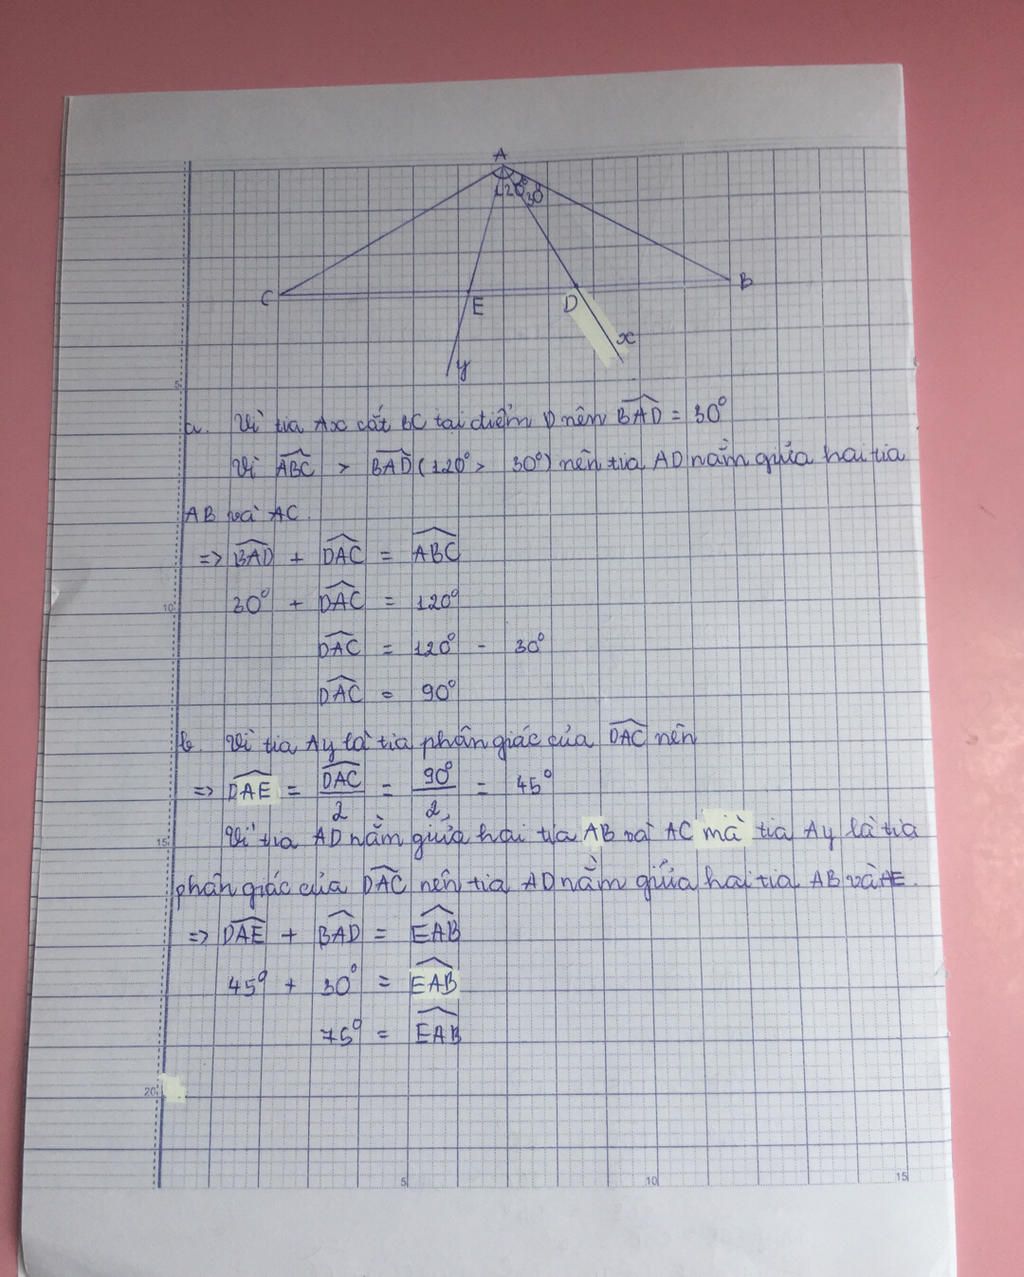 A
120° 30°
C
E
D
B
x
y
5
a. Vì tia Ax cắt BC tại điểm D nên BAD = 30°
Vì ABC > BAD (120° > 30°) nên tia AD nằm giữa hai tia
AB và AC.
=> BAD + DAC = ABC
10
30° + DAC = 120°
DAC = 120° - 30°
DAC = 90°
b. Vì tia Ay là tia phân giác của DAC nên
=> DAE = DAC/2 = 90°/2 = 45°
15
Vì tia AD nằm giữa hai tia AB và AC mà tia Ay là tia
phân giác của DAC nên tia AD nằm giữa hai tia AB và AE.
=> DAE + BAD = EAB
45° + 30° = EAB
75° = EAB
20
5 10 15